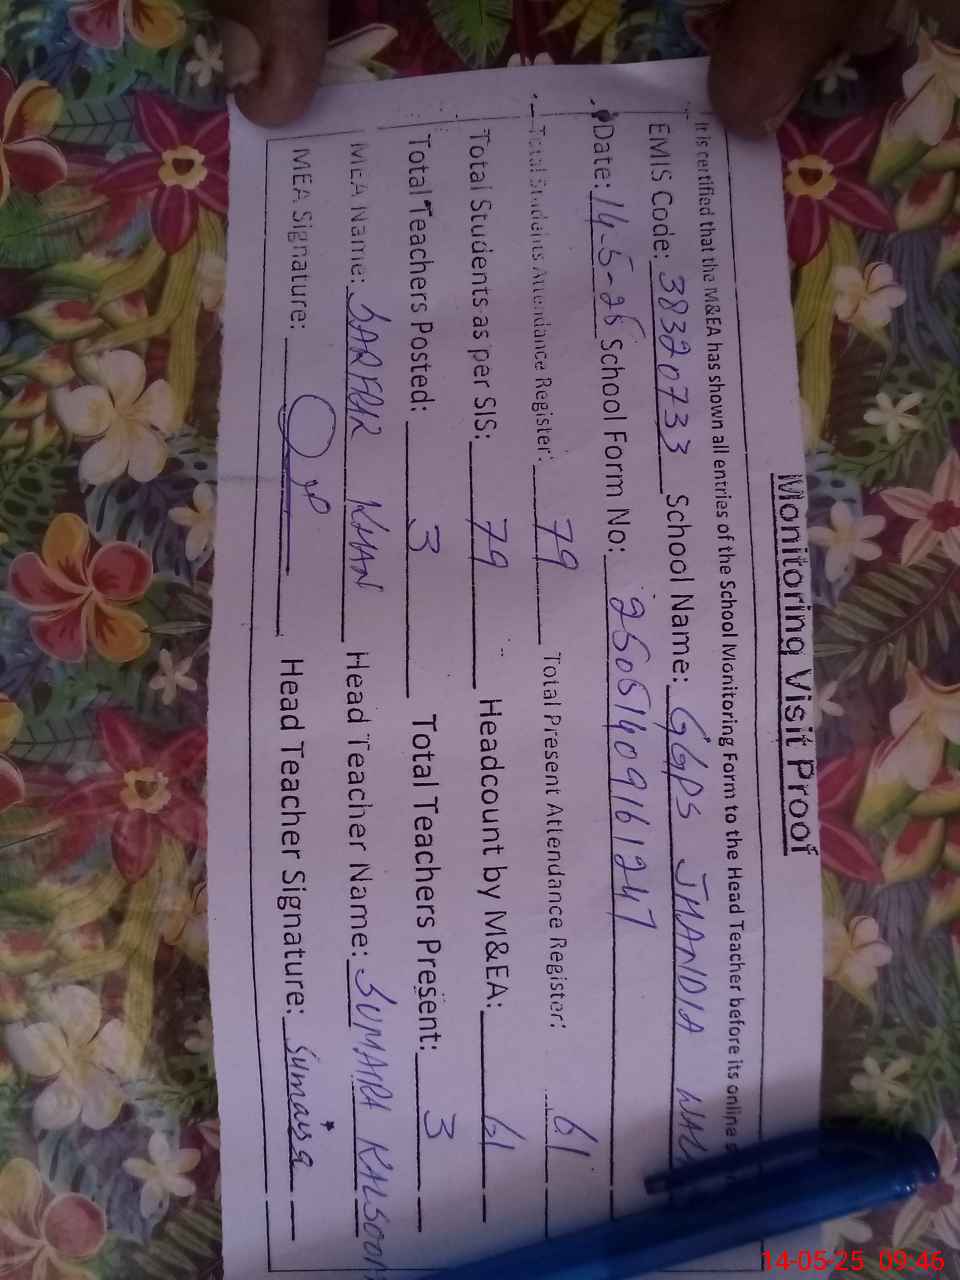 Monitoring Visit Proof
It is certified that the M&EA has shown all entries of the School Monitoring Form to the Head Teacher before its online
EMIS Code: 38320733 School Name: GGPS JHANDIA
Date: 14-5-25 School Form No: 25051409161247
Total Students Attendance Register: 79 Total Present Attendance Register: 61
Total Students as per SIS: 79 Headcount by M&EA: 61
Total Teachers Posted: 3 Total Teachers Present: 3
MEA Name: SARFRAZ KHAN Head Teacher Name: SUMAIRA KALSOOM
MEA Signature: Head Teacher Signature: Sumaira
14-05-25 09:46